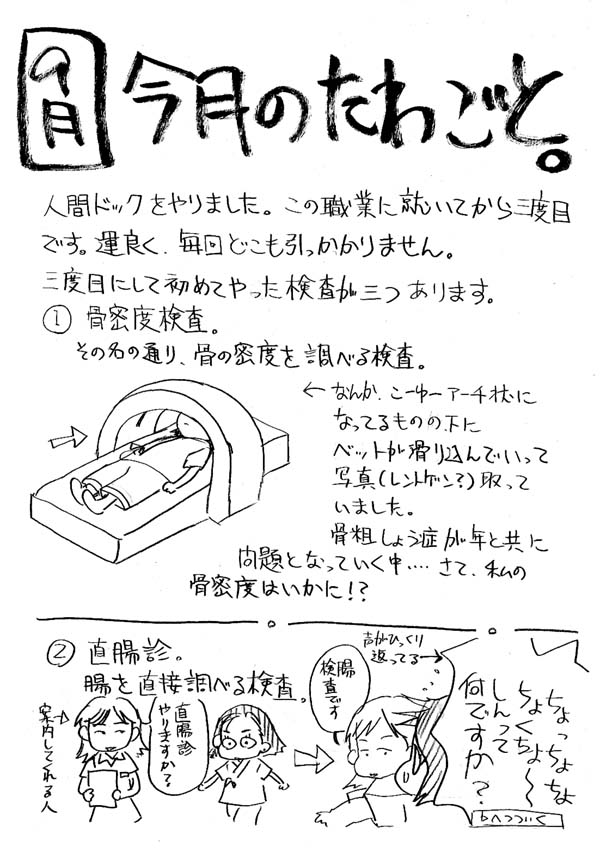 9月
今月のたわごと。
人間ドックをやりました。この職業に就いてから三度目
です。運良く、毎回どこも引っかかりません。
三度目にして初めてやった検査が三つあります。
① 骨密度検査。
その名の通り、骨の密度を調べる検査。
← なんか、こーゆーアーチ状に
なってるものの下に
ベットが滑り込んでいって
写真(レントゲン?)取って
いました。
骨粗しょう症が年と共に
問題となっていく中‥‥さて、私の
骨密度はいかに!?
② 直腸診。
腸を直接調べる検査。
案内してくれる人
直腸診
やりますか?
腸
検査です
声がひっくり
返ってる
ちょっちょちょ
ちょくちょ〜
しんって
何ですか?
bへつづく